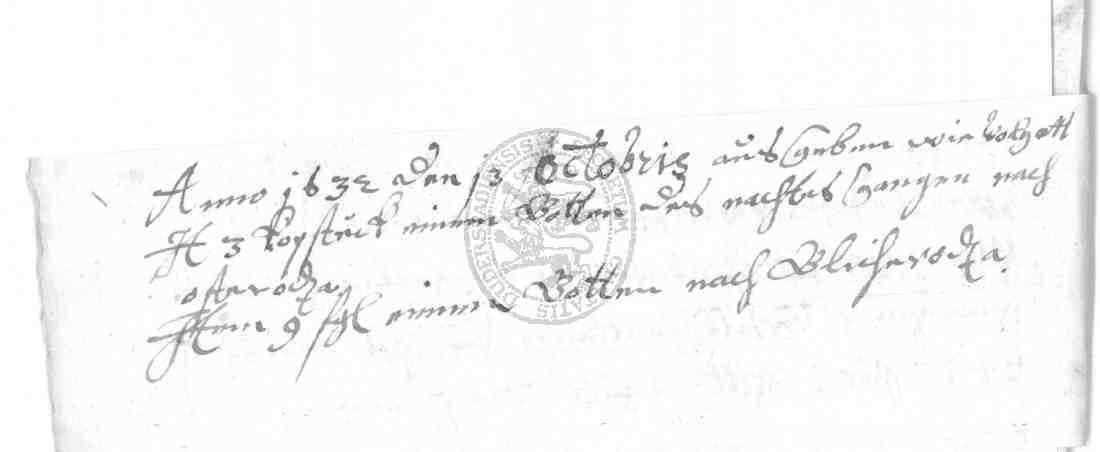 Anno 1632 den 13 Octobris aus Geben wie volgett
It 3 kopstuck einen Botten des nachtes Gangen nach
osteroda
Item 9 sgl einen Botten nach Blicheroda